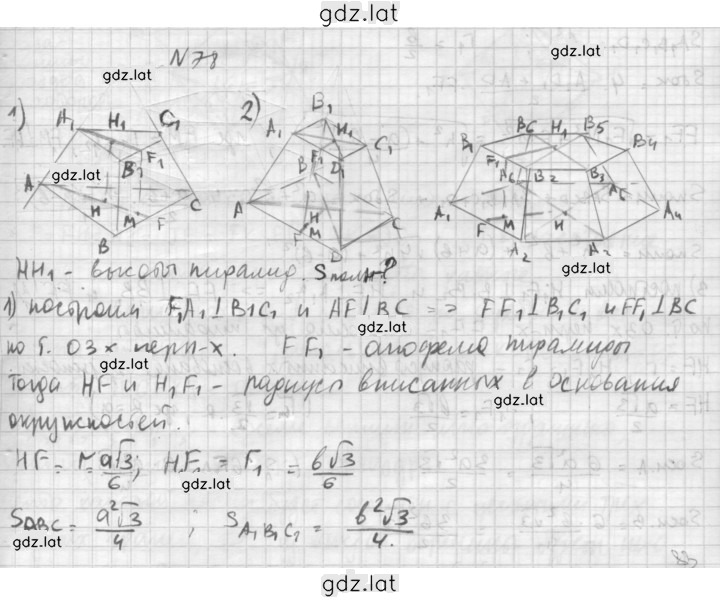 gdz.lat
N 78
gdz.lat
gdz.lat
1) A₁ H₁ C₁ B₁ F₁ A H M F C B
2) B₁ A₁ H₁ C₁ F₁ D₁ B A H F M C D
B₁ B6 H₁ B5 B4 F₁ A6 B2 B3 A5 A₁ F M H A4 A2 A3
gdz.lat
HH₁ - высоты пирамид. Sполн-?
gdz.lat
1) построим F₁A₁⊥B₁C₁ и AF⊥BC => FF₁⊥B₁C₁ и FF₁⊥BC
по т. О 3х перп-х. FF₁ - апофема пирамиды
gdz.lat
Тогда HF и H₁F₁ - радиусы вписанных в основания
gdz.lat
окружностей.
HF = r = a√3/6; H₁F₁ = r₁ = b√3/6
gdz.lat
SABC = a²√3/4 ; SA₁B₁C₁ = b²√3/4.
gdz.lat
gdz.lat